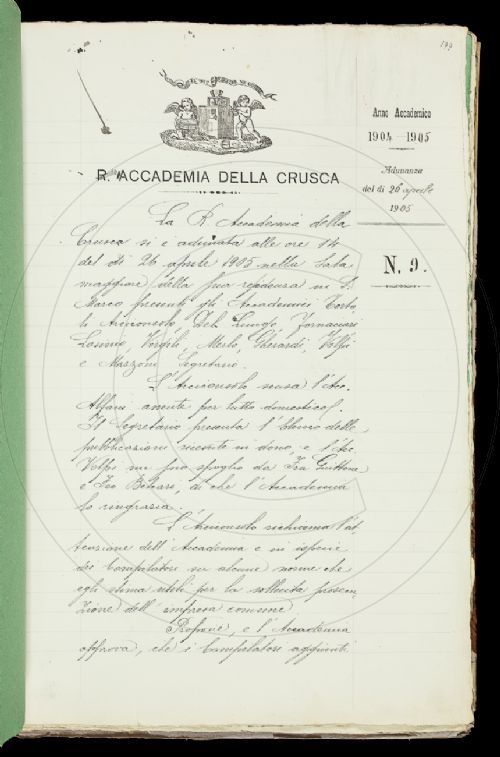 199
R. ACCADEMIA DELLA CRUSCA
Anno Accademico
1904-1905
Adunanza
del dì 26 aprile
1905
N. 9.
La R. Accademia della
Crusca si è adunata alle ore 14
del dì 26 aprile 1905 nella Sala
maggiore della sua residenza in S.
Marco presenti gli Accademici Torto-
li Arciconsolo, Del Lungo, Fornaciari
Lasinio, Vergoli, Merlo, Gherardi, Volpi
e Mazzoni Segretario.
L'Arciconsolo scusa l'Acc.
Alfani assente per lutto domestico.
Il Segretario presenta l'Elenco delle
pubblicazioni ricevute in dono, e l'Acc.
Volpi un suo spoglio da Fra Guittone
e Feo Belcari, di che l'Accademia
lo ringrazia.
L'Arciconsolo richiama l'at-
tenzione dell'Accademia e in ispecie
dei Compilatori su alcune norme che
egli stima utili per la sollecita prosecu-
zione dell'impresa comune.
Propone, e l'Accademia
approva, che i Compilatori aggiunti